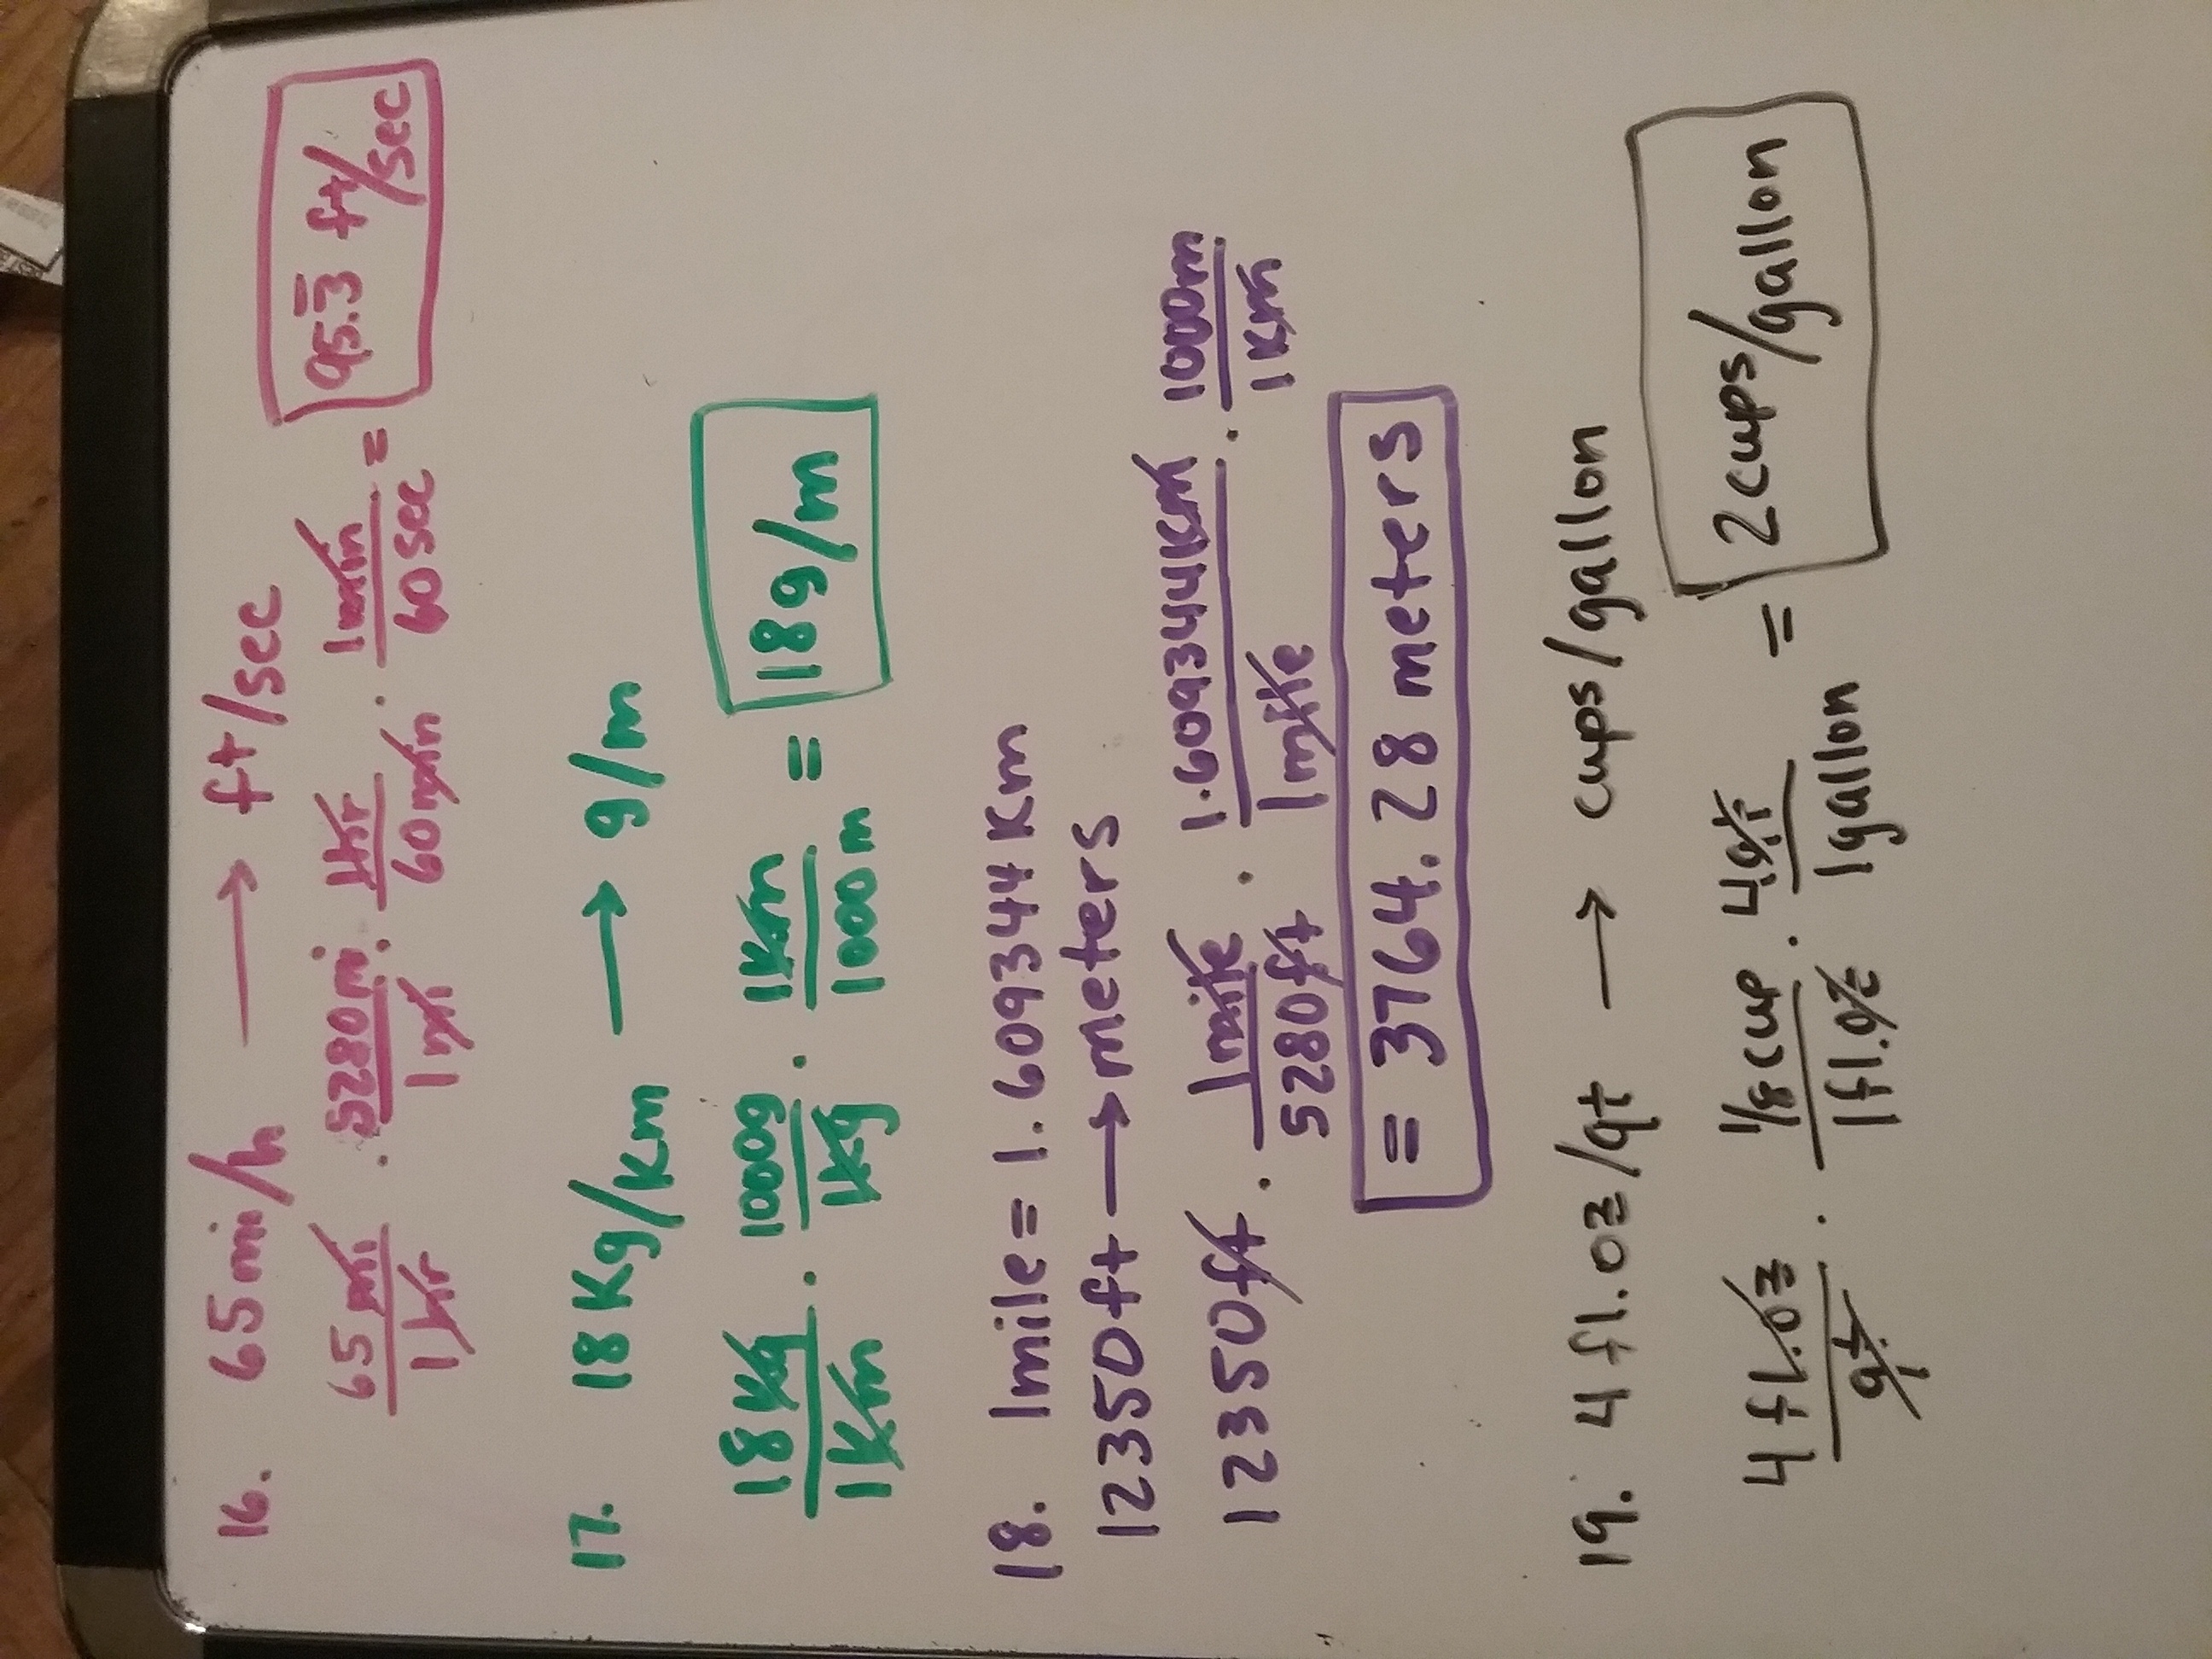 16. 65 mi/h → ft/sec
65 mi/1 hr · 5280 mi/1 mi · 1 Hr/60 min · 1 min/60 sec = 95.3̅ ft/sec
17. 18 Kg/Km → g/m
18 Kg/1 Km · 1000g/1 Kg · 1 Km/1000 m = 18 g/m
18. 1 mile = 1.609344 Km
12350 ft → meters
12350 ft · 1 mile/5280 ft · 1.609344 Km/1 mile · 1000m/1 Km
= 3764.28 meters
19. 4 fl.oz/qt → cups/gallon
4 fl.oz/qt · 1/8 cup/1 fl.oz · 4 qt/1 gallon = 2 cups/gallon